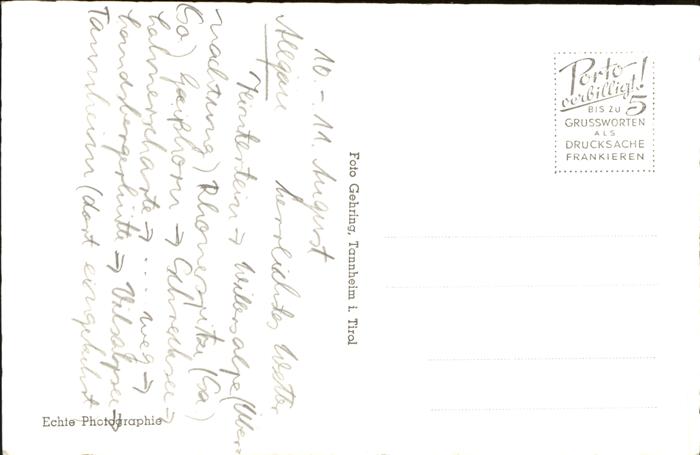 10. - 11. August
Allgäu herrlichstes Wetter
Hinterstein → Willersalpe (Über-
nachtung) Rhonenspitze (Sa)
(So) Gaishorn → Schrecksee →
→ ... weg →
Landsbergerhütte → Vilsalpsee →
Tannheim (dort eingekehrt
Foto Gehring, Tannheim i. Tirol
Echte Photographie
Porto
verbilligt!
BIS ZU 5
GRUSSWORTEN
ALS
DRUCKSACHE
FRANKIEREN